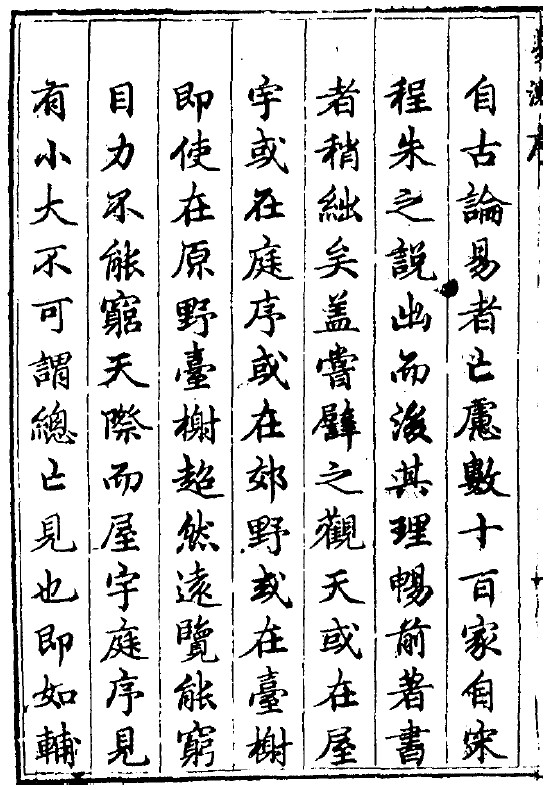 自古論易者亡慮數十百家自宋
程朱之説出而後其理暢前著書
者稍絀矣盖嘗譬之觀天或在屋
宇或在庭序或在郊野或在臺榭
即使在原野臺榭超然遠覽能窮
目力不能窮天際而屋宇庭序見
有小大不可謂總亡見也即如輔